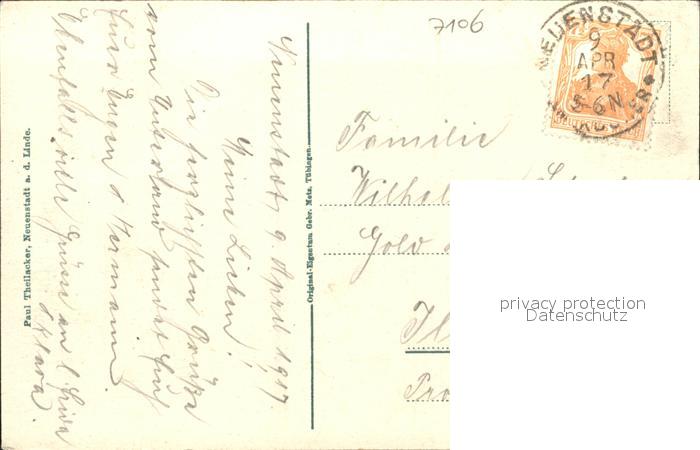 7106
NEUENSTADT
9
APR
17
5-6N
Familie
Wilhel
Gold
Neuenstadt, 9. April 1917.
Meine Lieben!
Die herzlichsten Grüße
vom Unterland sendet Euch
Eure Eugen & Hermann.
Ebenfalls viele Grüsse an l.
Klara.
Original-Eigentum Gebr. Metz, Tübingen.
Paul Theilacker, Neuenstadt a. d. Linde.
privacy protection
Datenschutz